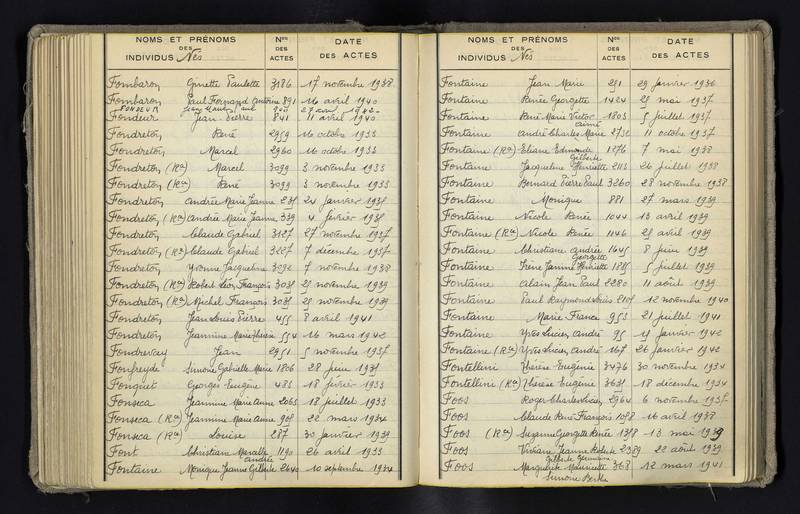 NOMS ET PRÉNOMS DES INDIVIDUS Nés Nos DES ACTES DATE DES ACTES
Fombaron Ginette Paulette 3186 17 novembre 1938
Fombaron Paul Fernand 891 16 avril 1940
FONDEUR
Fondeur Jean Pierre 841 11 avril 1940
Fondreton René 2959 16 octobre 1933
Fondreton Marcel 2960 16 octobre 1933
Fondreton (Ron) Marcel 3099 3 novembre 1933
Fondreton (Ron) René 3099 3 novembre 1933
Fondreton Andrée Marie Jeanne 24 janvier
Fondreton (Ron) Andrée Marie Jeanne 339 4 février
Fondreton Claude Gabriel 3127 27 novembre 1937
Fondreton (Ron) Claude Gabriel 3227 7 décembre 1937
Fondreton Yvonne Jacqueline 7 novembre 1938
Fondreton (Ron) Robert Léon François 21 novembre 1939
Fondreton (Ron) Michel François 21 novembre 1939
Fondreton Jean Louis Pierre 455 8 avril 1941
Fondreton Jeannine Marie 554 16 mars 1942
Fondrevay Jean 2951 5 novembre 1937
Fonfreyde Simone Gabrielle Marie 1806 28 juin
Fonquet Georges Eugène 485 18 février 1933
Fonseca Jeannine Marie Anne 2065 18 juillet 1933
Fonseca (Ron) Jeannine Marie Anne 908 22 mars 1934
Fonseca (Ron) Louise 287 30 janvier 1939
Font Christiane 1190 26 avril 1933
Fontaine Monique Jeanne Gilberte Andrée 2640 10 septembre 1934
NOMS ET PRÉNOMS DES INDIVIDUS Nés Nos DES ACTES DATE DES ACTES
Fontaine Jean Marie 291 29 janvier 1936
Fontaine Renée Georgette 1424 25 mai 1937
Fontaine René Marie Victor Aimé 1803 5 juillet 1937
Fontaine André Charles Marie 11 octobre 1937
Fontaine (Ron) Eliane Edmonde Gilberte 1276 7 mai 1938
Fontaine Jacqueline Henriette 2113 26 juillet 1938
Fontaine Bernard Pierre Paul 3260 28 novembre 1938
Fontaine Monique 881 27 mars 1939
Fontaine Nicole Renée 1044 13 avril 1939
Fontaine (Ron) Nicole Renée 1146 25 avril 1939
Fontaine Christiane Andrée Georgette 1645 8 juin 1939
Fontaine Irène Jeannine Henriette 5 juillet 1939
Fontaine Alain Jean Paul 2280 11 août 1939
Fontaine Paul Raymond Louis 12 novembre 1940
Fontaine Marie France 953 21 juillet 1941
Fontaine Yves Lucien André 95 janvier 1942
Fontaine (Ron) Yves Lucien André 167 26 janvier 1942
Fontellini Thérèse Eugénie 3476 30 novembre 1934
Fontellini (Ron) Thérèse Eugénie 18 décembre 1934
Foos Roger Charles 2964 6 novembre 1937
Foos Claude René François 16 avril 1938
Foos (Ron) Suzanne Georgette Renée 13 mai 1939
Foos Viviane Jeanne Gilberte Germaine 22 août 1939
Foos Marguerite Mauricette Simone Berthe 368 12 mars 1941